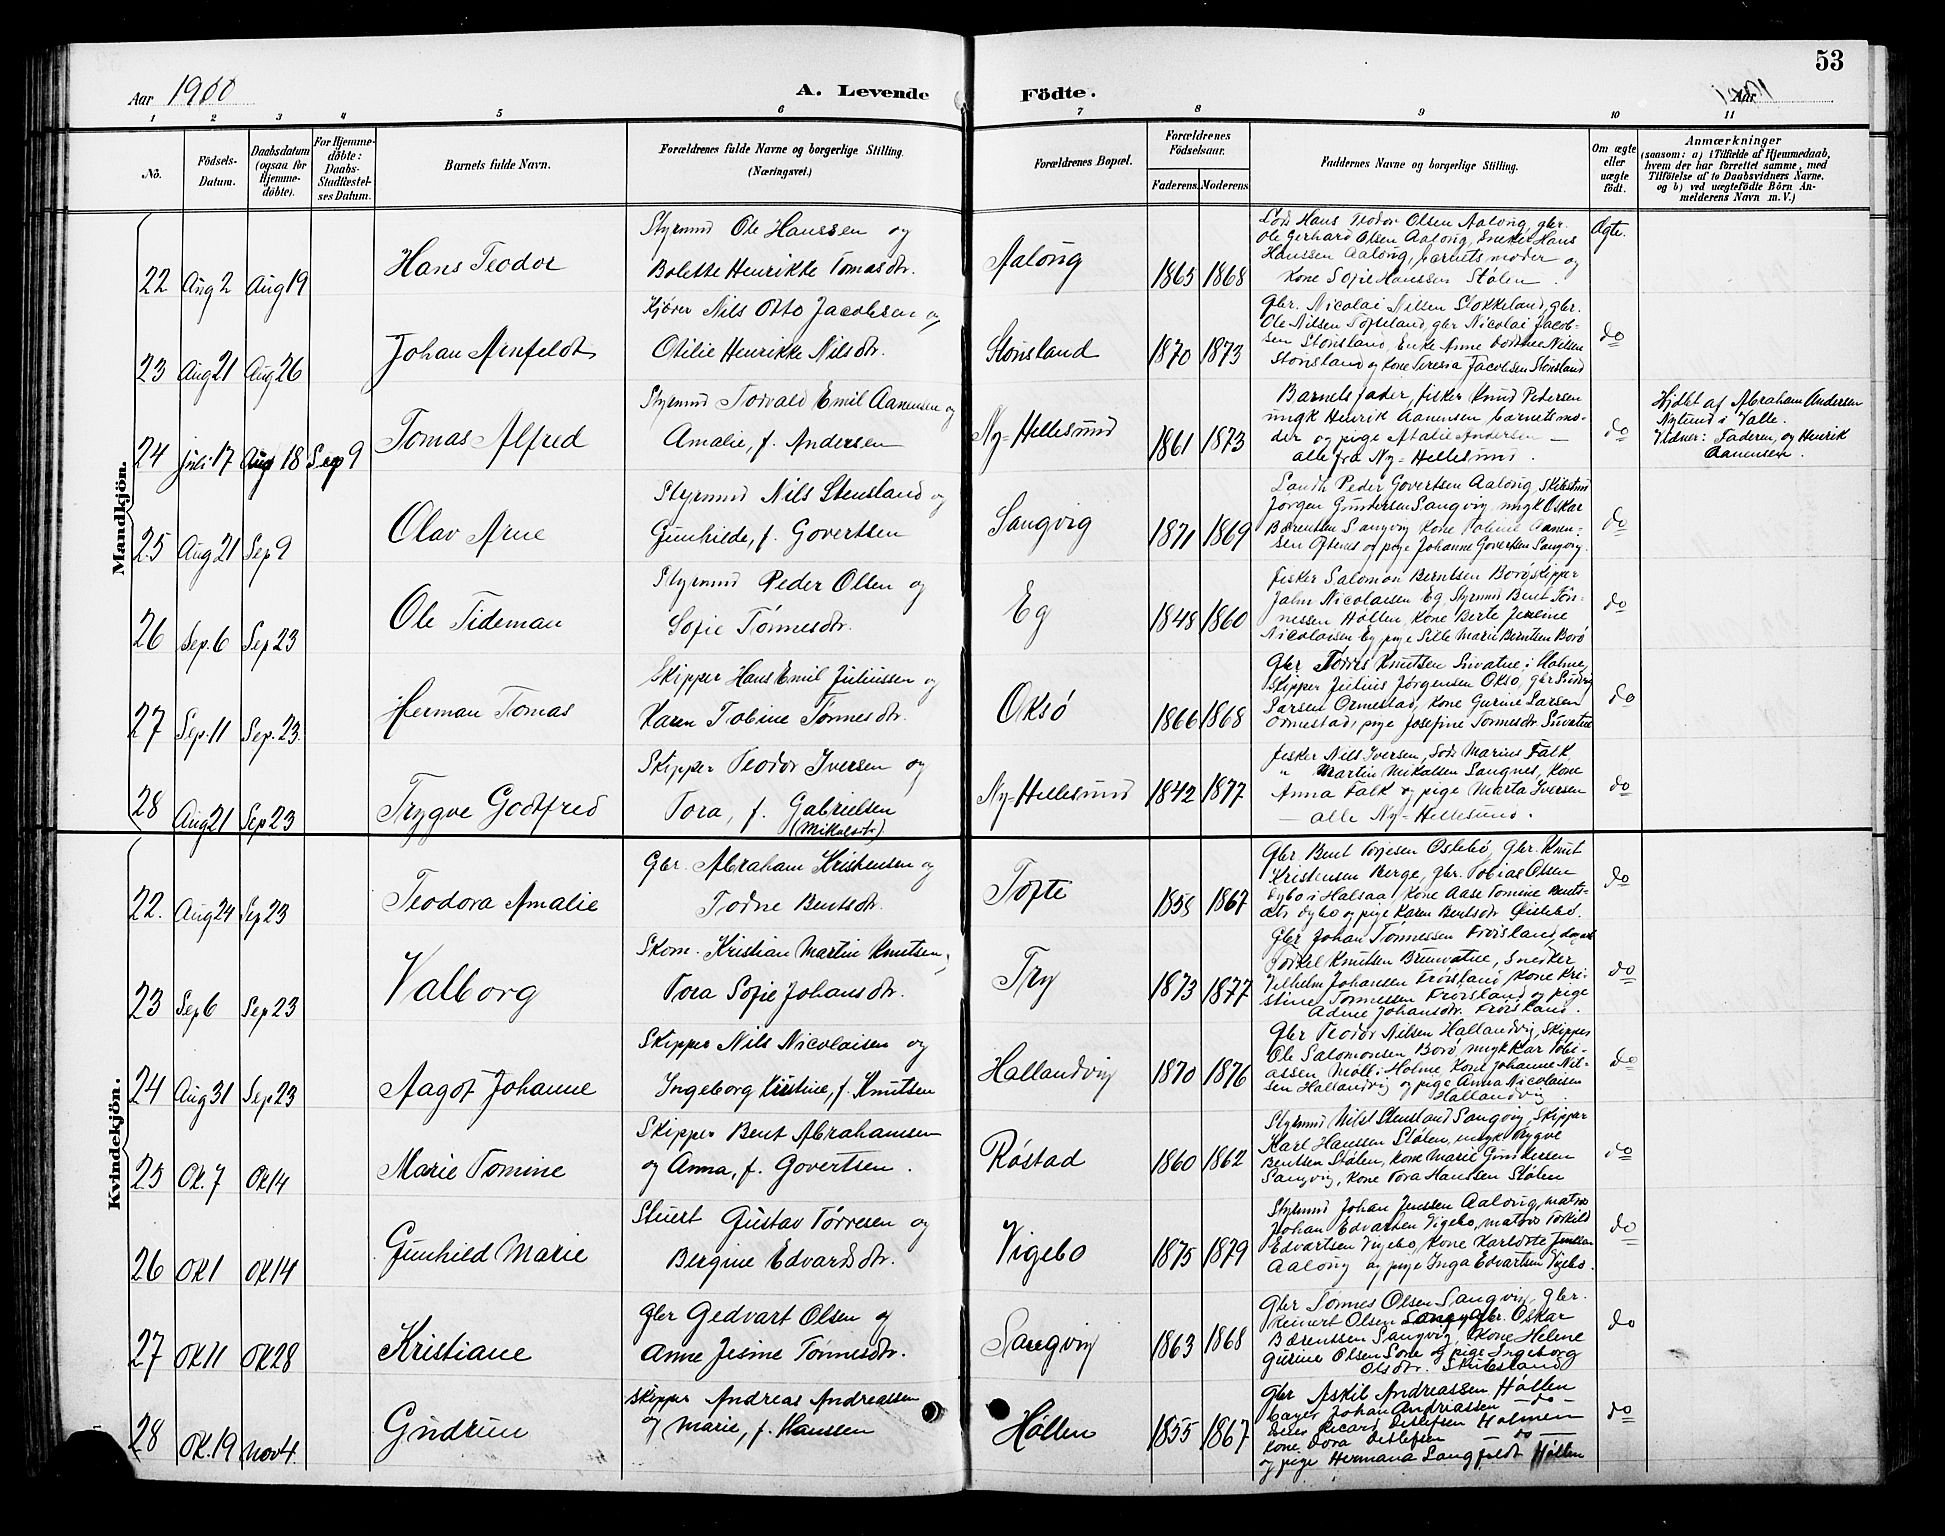 53
Aar 1900
A. Levende Födte.
Aar
1 2 3 4 5 6 7 8 9 10 11
No.
Födsels-
Datum.
Daabsdatum
(ogsaa for
Hjemme-
döbte).
For Hjemme-
döbte:
Daabs-
Stadfæstel-
ses Datum.
Barnets fulde Navn.
Forældrenes fulde Navne og borgerlige Stilling.
(Næringsvei.)
Forældrenes Bopæl.
Forældrenes
Födselsaar.
Faderens. Moderens.
Faddernes Navne og borgerlige Stilling.
Om ægte
eller
uægte
født.
Anmærkninger
(saasom: a) i Tilfælde af Hjemmedaab,
hvem der har forrettet samme, med
Tilföielse af to Daabsvidners Navne.
og b) ved uægtefödte Börn An-
melderens Navn m. V.)
Mandkjön.
22 Aug 2 Aug 19
Hans Teodor
Styrmd Ole Hanssen og
Bolette Henrikke Tomasdtr.
Aalong
1865 1868
Hans Teodor Olsen Aalong, gbr.
Ole Gerhard Olsen Aalong, Enkem Hans
Hanssen Aalong, barnets moder og
Kone Sofie Hanssen Stølen
Ægte.
23 Aug 21 Aug 26
Johan Arnfeldt
Kjører Nils Otto Jacobsen og
Otilie Henrikke Nilsdtr.
Stonsland
1870 1873
Gbr. Nicolai Nilsen Stokkeland, gbr.
Ole Nilsen Tofteland, gbr Nicolai Jacob-
sen Stonsland, Enke Anne Nilsen
Stonsland og Kone Teresia Jacobsen Stonsland
do
24 Juli 17 Aug 18 Sep 9
Tomas Alfred
Styrmd Torvald Emil Aanensen og
Amalie, f. Andersen
Ny-Hellesund
1861 1873
Barnets fader, fisker Knud Pedersen
ungk Henrik Aanensen, barnets mo-
der og pige Atalie Andersen —
alle fra Ny-Hellesund.
do
Hjdbt af Abraham Andersen
Nylund i Valle.
Vidner: Faderen, og Henrik
Aanensen.
25 Aug 21 Sep 9
Olav Arne
Styrmd Nils Stensland og
Gunhilde, f. Govertsen
Sangvig
1871 1869
Peder Govertsen Aalong,
Jørgen Gundersen Sangvig, ungk Oskar
Bærentsen Sangvig, Kone Aanen-
sen og pige Johanne Govertsen Sangvig.
do
26 Sep. 6 Sep 23
Ole Tideman
Styrmd Peder Olsen og
Sofie Tønnesdtr.
Eg
1848 1860
fisker Salomon Berntsen Borø, skipper
Jahn Nicolaisen Eg, Styrmd Bent Tøn-
nessen Høllen, Kone Berte
Nicolaisen Eg, pige Sille Marie Berntsen Borø
do
27 Sep. 11 Sep. 23
Herman Tomas
Skipper Hans Emil Juliussen og
Karen Tobine Tønnesdtr.
Oksø
1866 1868
Gbr Tønnes Knutsen i Holme,
Skipper Julius Jørgensen Oksø, gbr
Larsen Ormestad, Kone Gurine Larsen
Ormestad, pige Josefine Tønnesdtr
do
28 Aug 21 Sep 23
Trygve Godtfred
Skipper Teodor Iversen og
Tora, f. Gabrielsen
(Mikalsdtr)
Ny-Hellesund
1842 1877
fisker Nils Iversen, Marius Falk,
" Martin Mikalsen Sangnes, Kone
Anna Falk og pige Marta Iversen
— alle Ny-Hellesund.
do
Kvindekjön.
22. Aug 24 Sep 23
Teodora Amalie
Gbr. Abraham Kristensen og
Todne Bentsdtr.
Tofte
1858 1867
Gbr. Bent Torjesen Ostebø, Gbr. Knut
Kristensen Berge, gbr. Tobias Olsen
Dybo i Halsaa, Kone Aase Tomine Bents-
dtr Dybo og pige Karen Bentsdtr Østebø.
do
23 Sep 6 Sep 23
Valborg
Skom. Kristian Martin Knutsen,
Tora Sofie Johansdtr.
Try
1873 1877
Gbr Johan Tønnessen Frøisland,
Torkel Knutsen Brunvatne, Snedker
Vilhelm Johansen Frøisland, Kone Kri-
stine Tønnessen Frøisland og pige
Adine Johansdtr. Frøisland.
do
24 Aug 31 Sep 23
Aagot Johanne
Skipper Nils Nicolaisen og
Ingeborg Kristine, f. Knutsen
Hallandvig
1870 1876
Gbr Teodor Nilsen Hallandvig, Skipper
Ole Salomonsen Borø, ungk Kar Tobi-
assen Moll i Holme, Kone Johanne Nil-
sen Hallandvig og pige Anna Nicolaisen
Hallandvig
do
25 Ok. 7 Ok 14
Marie Tomine
Skipper Bent Abrahamsen
og Anna, f. Govertsen.
Røstad
1860 1862
Styrmd Nils Stensland Sangvig, Skipper
Karl Hanssen Stølen, ungk Trygve
Bentsen Stølen, Kone Marie Gundersen
Sangvig, Kone Tora Hanssen Stølen
do
26 Ok 1 Ok 14
Gunhild Marie
Stuert Gustav Tørresen og
Bergine Edvardsdtr.
Vigebo
1875 1879
Styrmd Johan Jenssen Aalong, matros
Johan Edvartsen Vigebo, matros Torkild
Edvartsen Vigebo, Kone Karldote Jenssen
Aalong og pige Inga Edvartsen Vigebo.
do
27 Ok 11 Ok 28
Kristiane
Gbr Gedvart Olsen og
Anne Jesine Tønnesdtr.
Sangvig
1863 1868
Gbr Tønnes Olsen Sangvig, Gbr.
Reinert Olsen Sangvig, Gbr. Oskar
Bærentsen Sangvig, Kone Helene
Gurine Olsen og pige Ingeborg
Olsdtr.
do
28 Ok. 19 Nov 4.
Gudrun
Skipper Andreas Andreassen
og Marie, f. Hanssen
Høllen
1855 1867
Gbr Askil Andreassen Høllen
Johan Andreassen — do —
Ricard Detlefsen Holmen
Kone Tora Detlefsen do
og pige Hermana Langfeldt Høllen
do